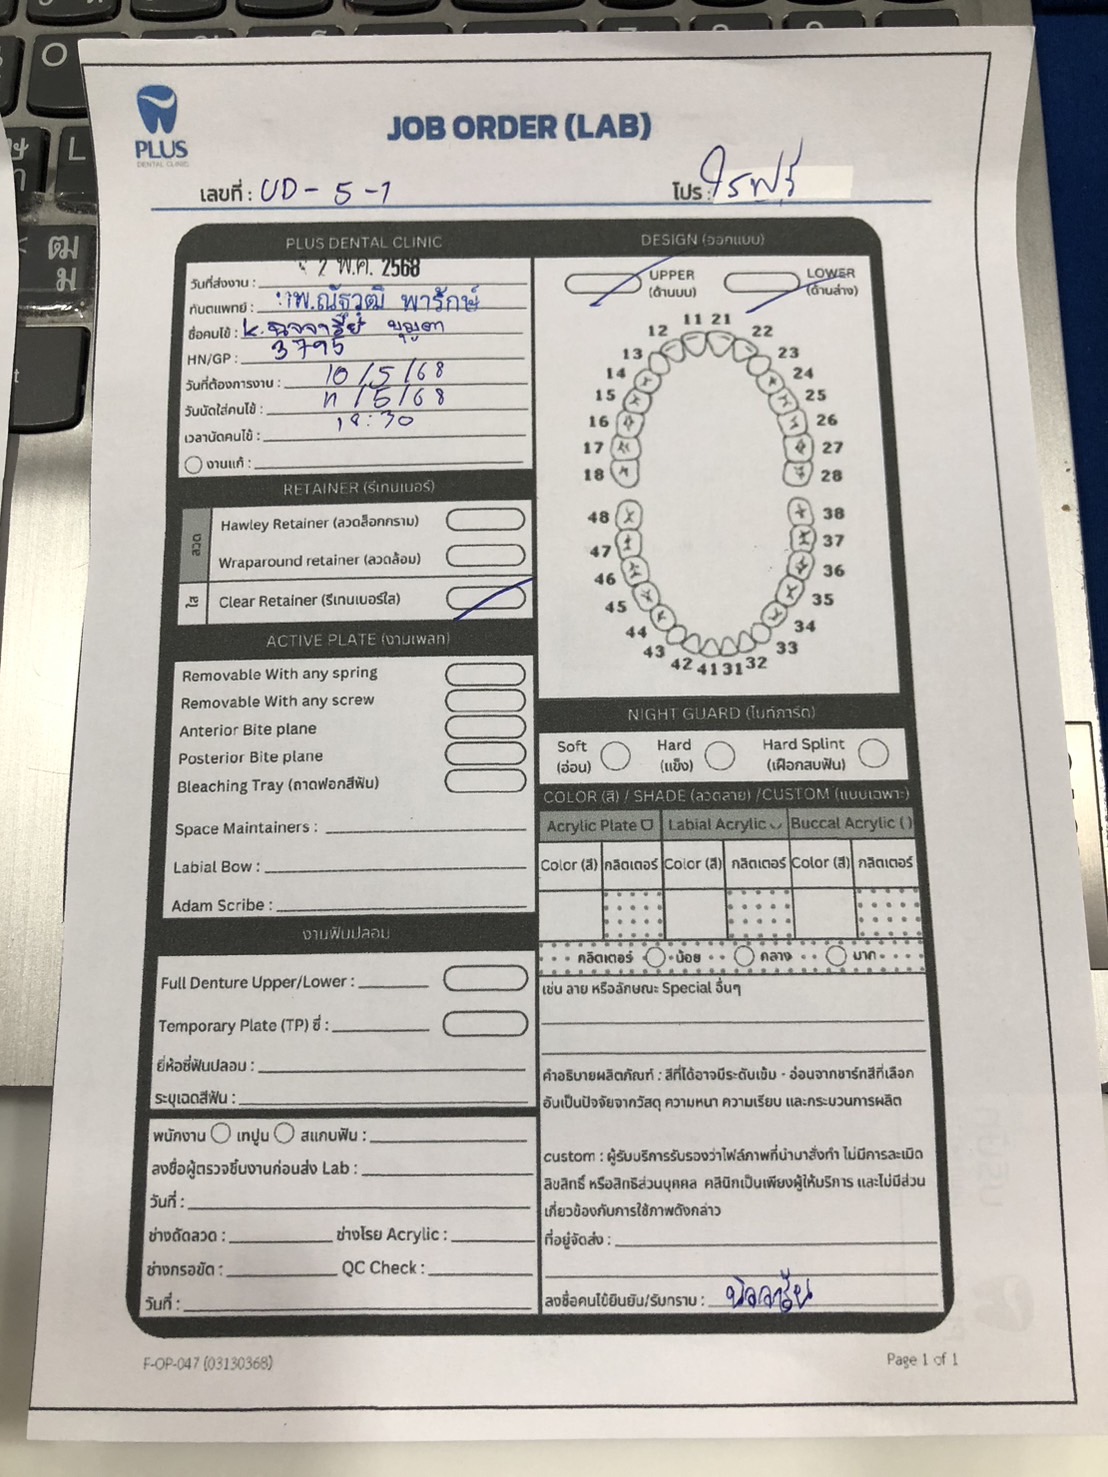 PLUS
DENTAL CLINIC
JOB ORDER (LAB)
เลขที่ : UD - 5 - 1
โปร :
PLUS DENTAL CLINIC
วันที่ส่งงาน : 2 พ.ค. 2568
ทันตแพทย์ : ทพ.ณัฐวุฒิ พารักษ์
ชื่อคนไข้ : K.
HN/GP : 3795
วันที่ต้องการงาน : 10 / 5 / 68
วันนัดใส่คนไข้ : 11 / 5 / 68
เวลานัดคนไข้ : 18:30
งานแก้ :
RETAINER (รีเทนเนอร์)
ลวด
Hawley Retainer (ลวดล็อกกราม)
Wraparound retainer (ลวดล้อม)
ใส
Clear Retainer (รีเทนเนอร์ใส)
ACTIVE PLATE (งานเพลท)
Removable With any spring
Removable With any screw
Anterior Bite plane
Posterior Bite plane
Bleaching Tray (ถาดฟอกสีฟัน)
Space Maintainers :
Labial Bow :
Adam Scribe :
งานฟันปลอม
Full Denture Upper/Lower :
Temporary Plate (TP) ซี่ :
ยี่ห้อซี่ฟันปลอม :
ระบุเฉดสีฟัน :
พนักงาน เทปูน สแกนฟัน :
ลงชื่อผู้ตรวจชิ้นงานก่อนส่ง Lab :
วันที่ :
ช่างดัดลวด : ช่างโรย Acrylic :
ช่างกรอขัด : QC Check :
วันที่ :
DESIGN (ออกแบบ)
UPPER (ด้านบน) LOWER (ด้านล่าง)
11 21
12 22
13 23
14 24
15 25
16 26
17 27
18 28
48 38
47 37
46 36
45 35
44 34
43 33
42 41 31 32
NIGHT GUARD (ไนท์การ์ด)
Soft (อ่อน) Hard (แข็ง) Hard Splint (เฝือกสบฟัน)
COLOR (สี) / SHADE (ลวดลาย) /CUSTOM (แบบเฉพาะ)
Acrylic Plate Labial Acrylic Buccal Acrylic ( )
Color (สี) กลิตเตอร์ Color (สี) กลิตเตอร์ Color (สี) กลิตเตอร์
กลิตเตอร์ น้อย กลาง มาก
เช่น ลาย หรือลักษณะ Special อื่นๆ
คำอธิบายผลิตภัณฑ์ : สีที่ได้อาจมีระดับเข้ม - อ่อนจากชาร์ทสีที่เลือก
อันเป็นปัจจัยจากวัสดุ ความหนา ความเรียบ และกระบวนการผลิต
custom : ผู้รับบริการรับรองว่าไฟล์ภาพที่นำมาสั่งทำ ไม่มีการละเมิด
ลิขสิทธิ์ หรือสิทธิส่วนบุคคล คลินิกเป็นเพียงผู้ให้บริการ และไม่มีส่วน
เกี่ยวข้องกับการใช้ภาพดังกล่าว
ที่อยู่จัดส่ง :
ลงชื่อคนไข้ยืนยัน/รับทราบ :
F-OP-047 (03130368)
Page 1 of 1